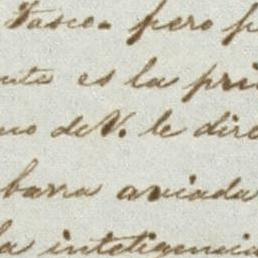 Tasco. pero p
nta es la pri
mo de V. le dire
barra aviada
la inteligencia